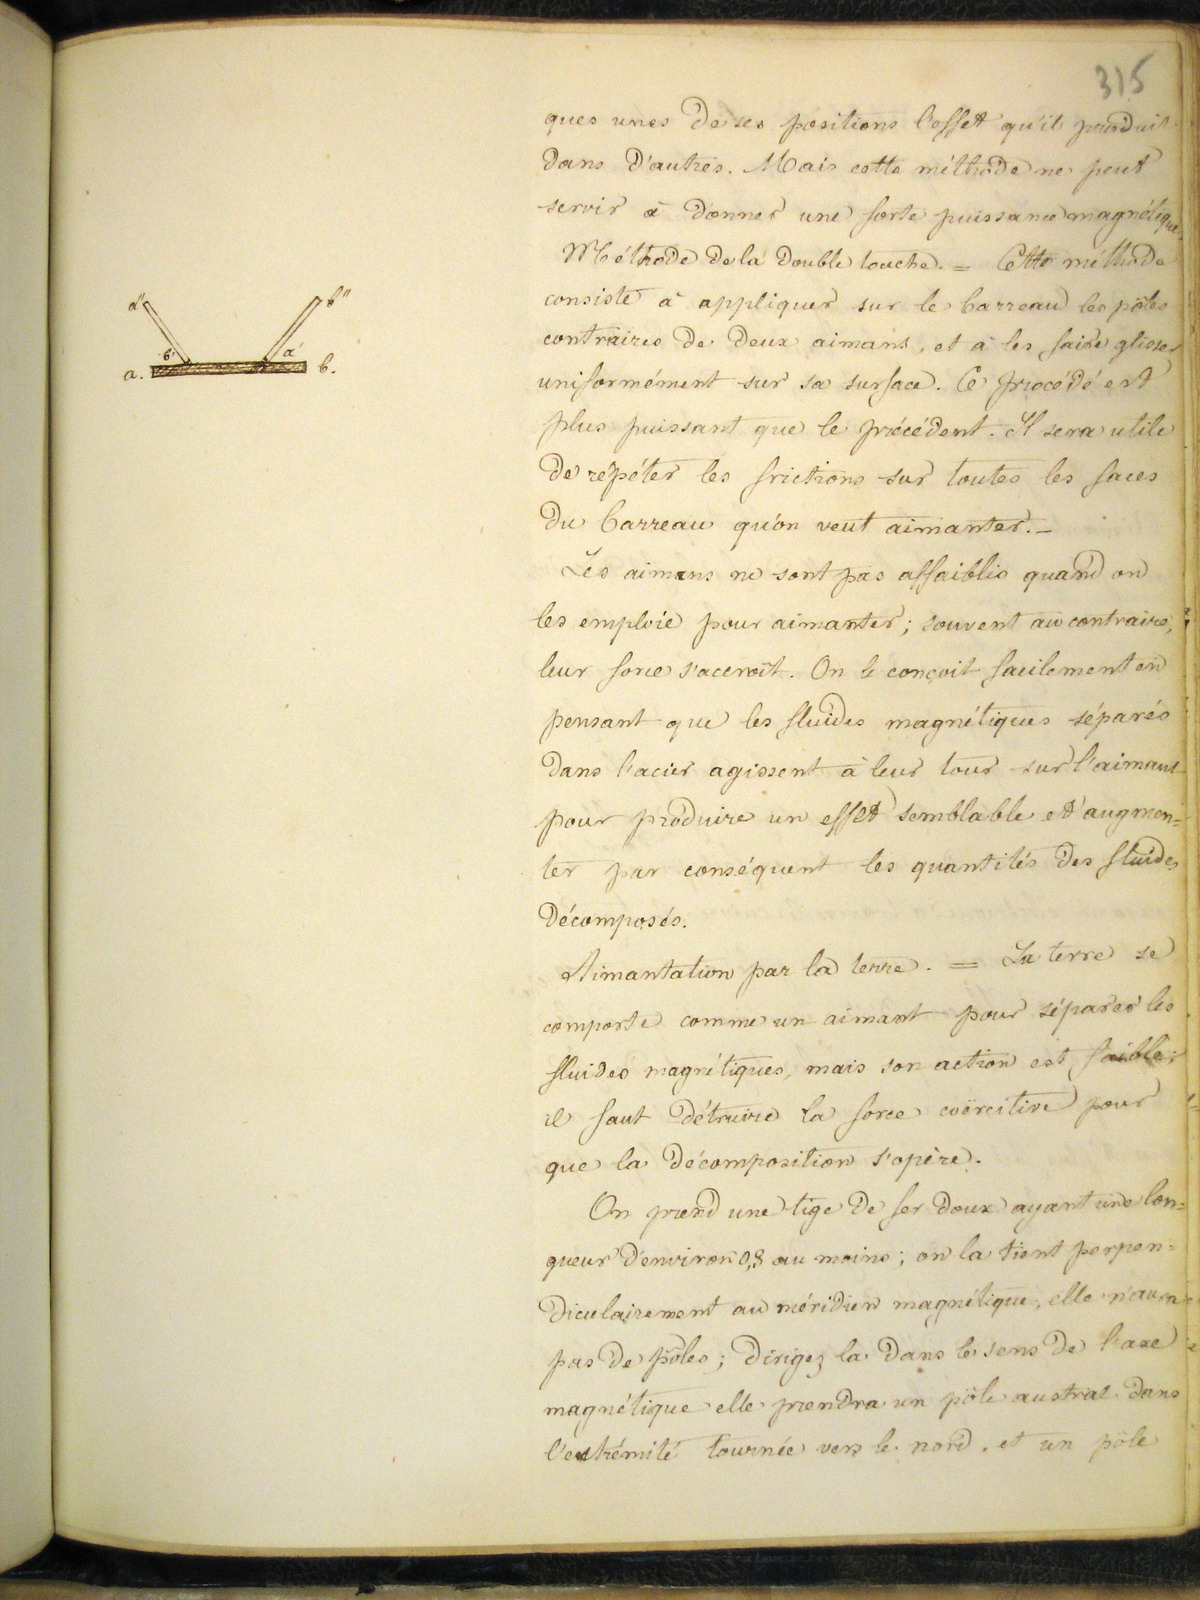 315
ques unes de ses positions l'effet qu'il produit
dans d'autres. Mais cette méthode ne peut
servir à donner une forte puissance magnétique.
Méthode de la double touche. = Cette méthode
consiste à appliquer sur le barreau les pôles
contraires de deux aimans, et à les faire glisser
uniformément sur sa surface. Ce procédé est
plus puissant que le précédent. Il sera utile
de répéter les frictions sur toutes les faces
du barreau qu'on veut aimanter. —
Les aimans ne sont pas affaiblis quand on
les emploie pour aimanter; souvent au contraire,
leur force s'accroît. On le conçoit facilement en
pensant que les fluides magnétiques séparés
dans l'acier agissent à leur tour sur l'aimant
pour produire un effet semblable et augmen=
ter par conséquent les quantités des fluides
décomposés.
Aimantation par la terre. = La terre se
comporte comme un aimant pour séparer les
fluides magnétiques, mais son action est faible;
il faut détruire la force coërcitive pour
que la décomposition s'opère.
On prend une tige de fer doux ayant une lon=
gueur d'environ 0,8 au moins; on la tient perpen=
diculairement au méridien magnétique, elle n'aura
pas de pôles; dirigez la dans le sens de l'axe
magnétique elle prendra un pôle austral dans
l'extrémité tournée vers le nord, et un pôle
a" b"
b' a'
a. b.